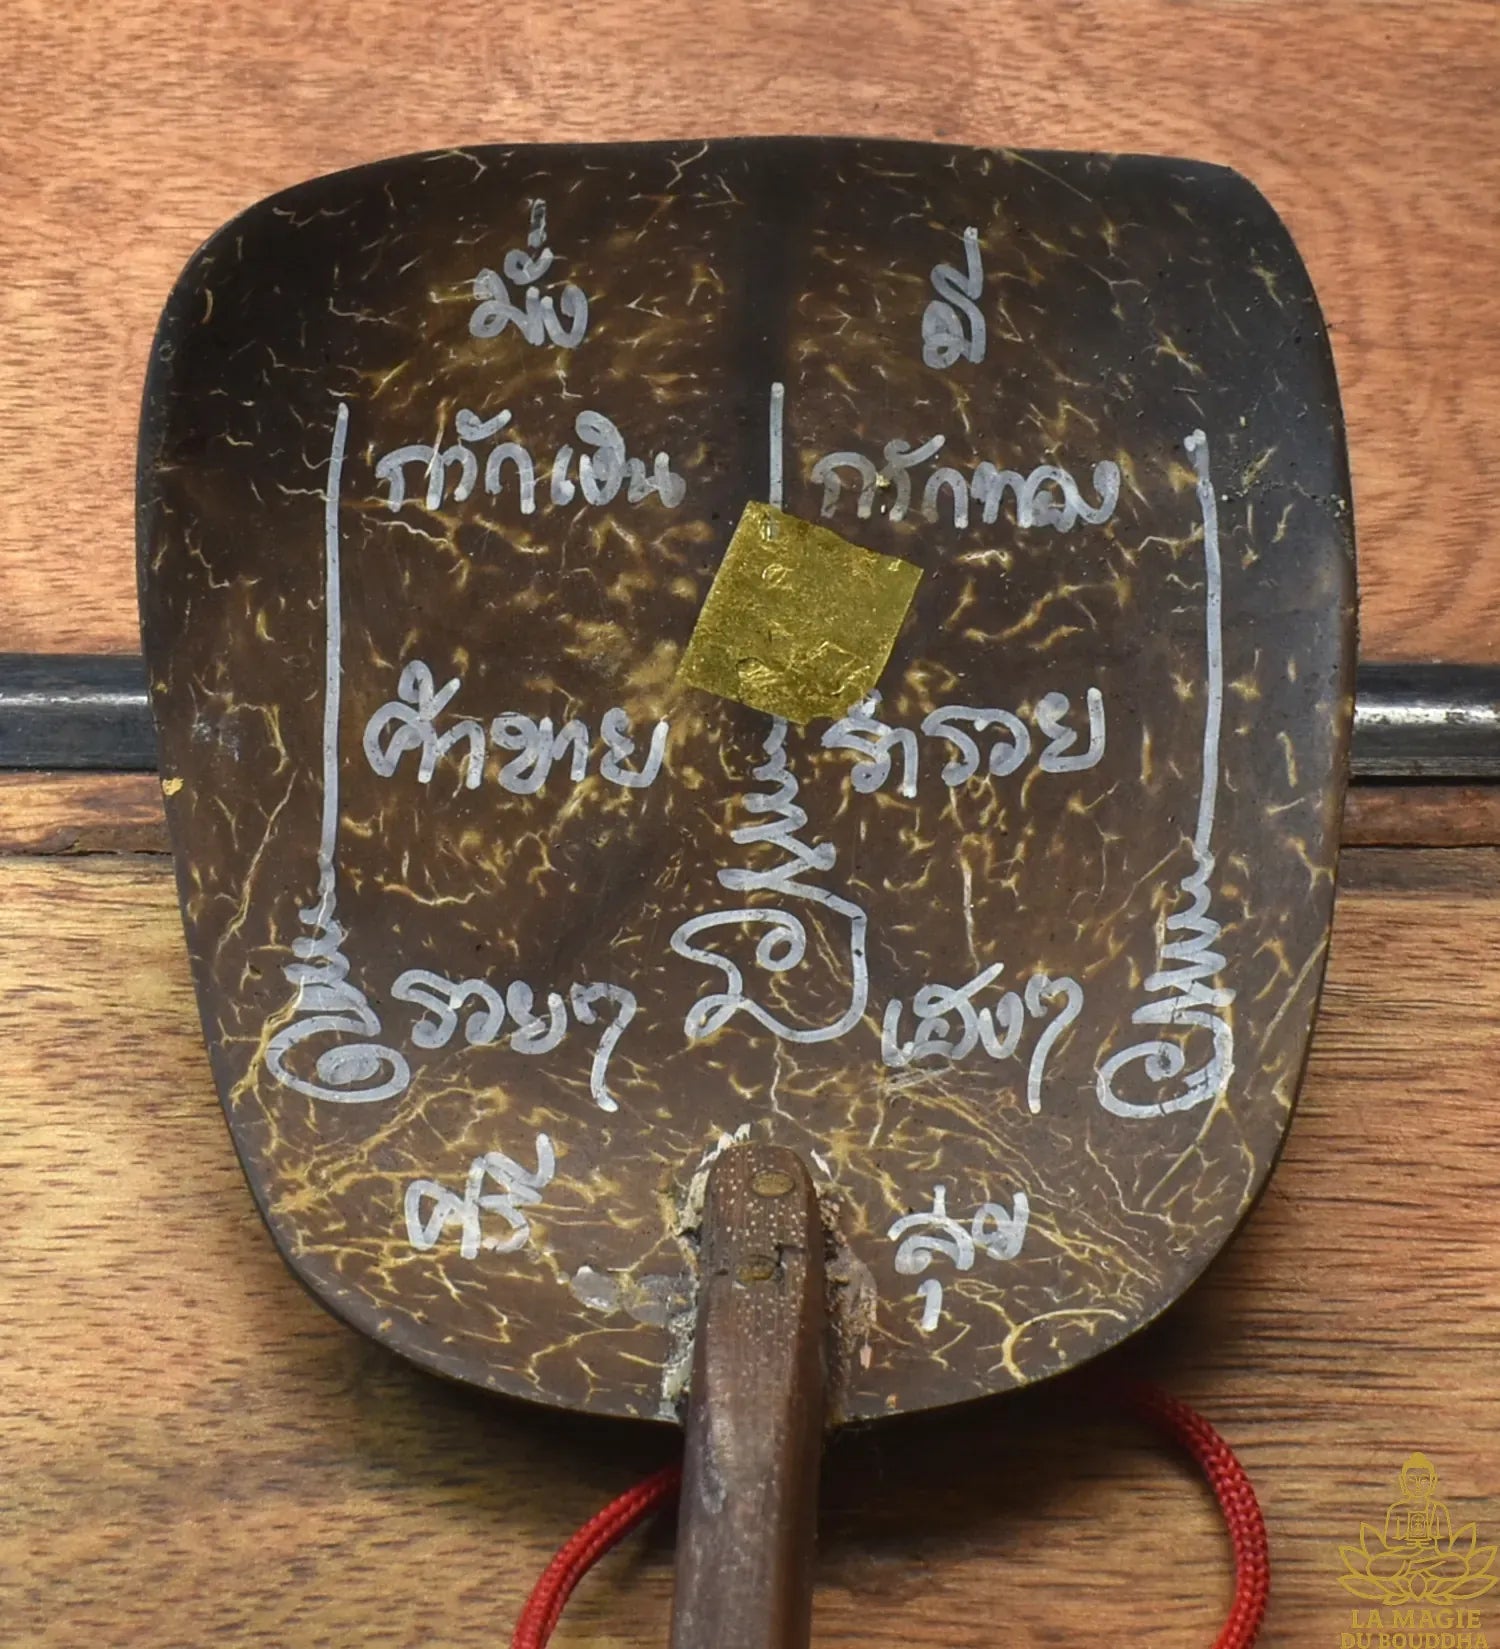 มั่ง มี
กวักเงิน กวักทอง
ค้าขาย ร่ำรวย
รวยๆ เฮงๆ
ศรี สุข
LA MAGIE
DU BOUDDHA